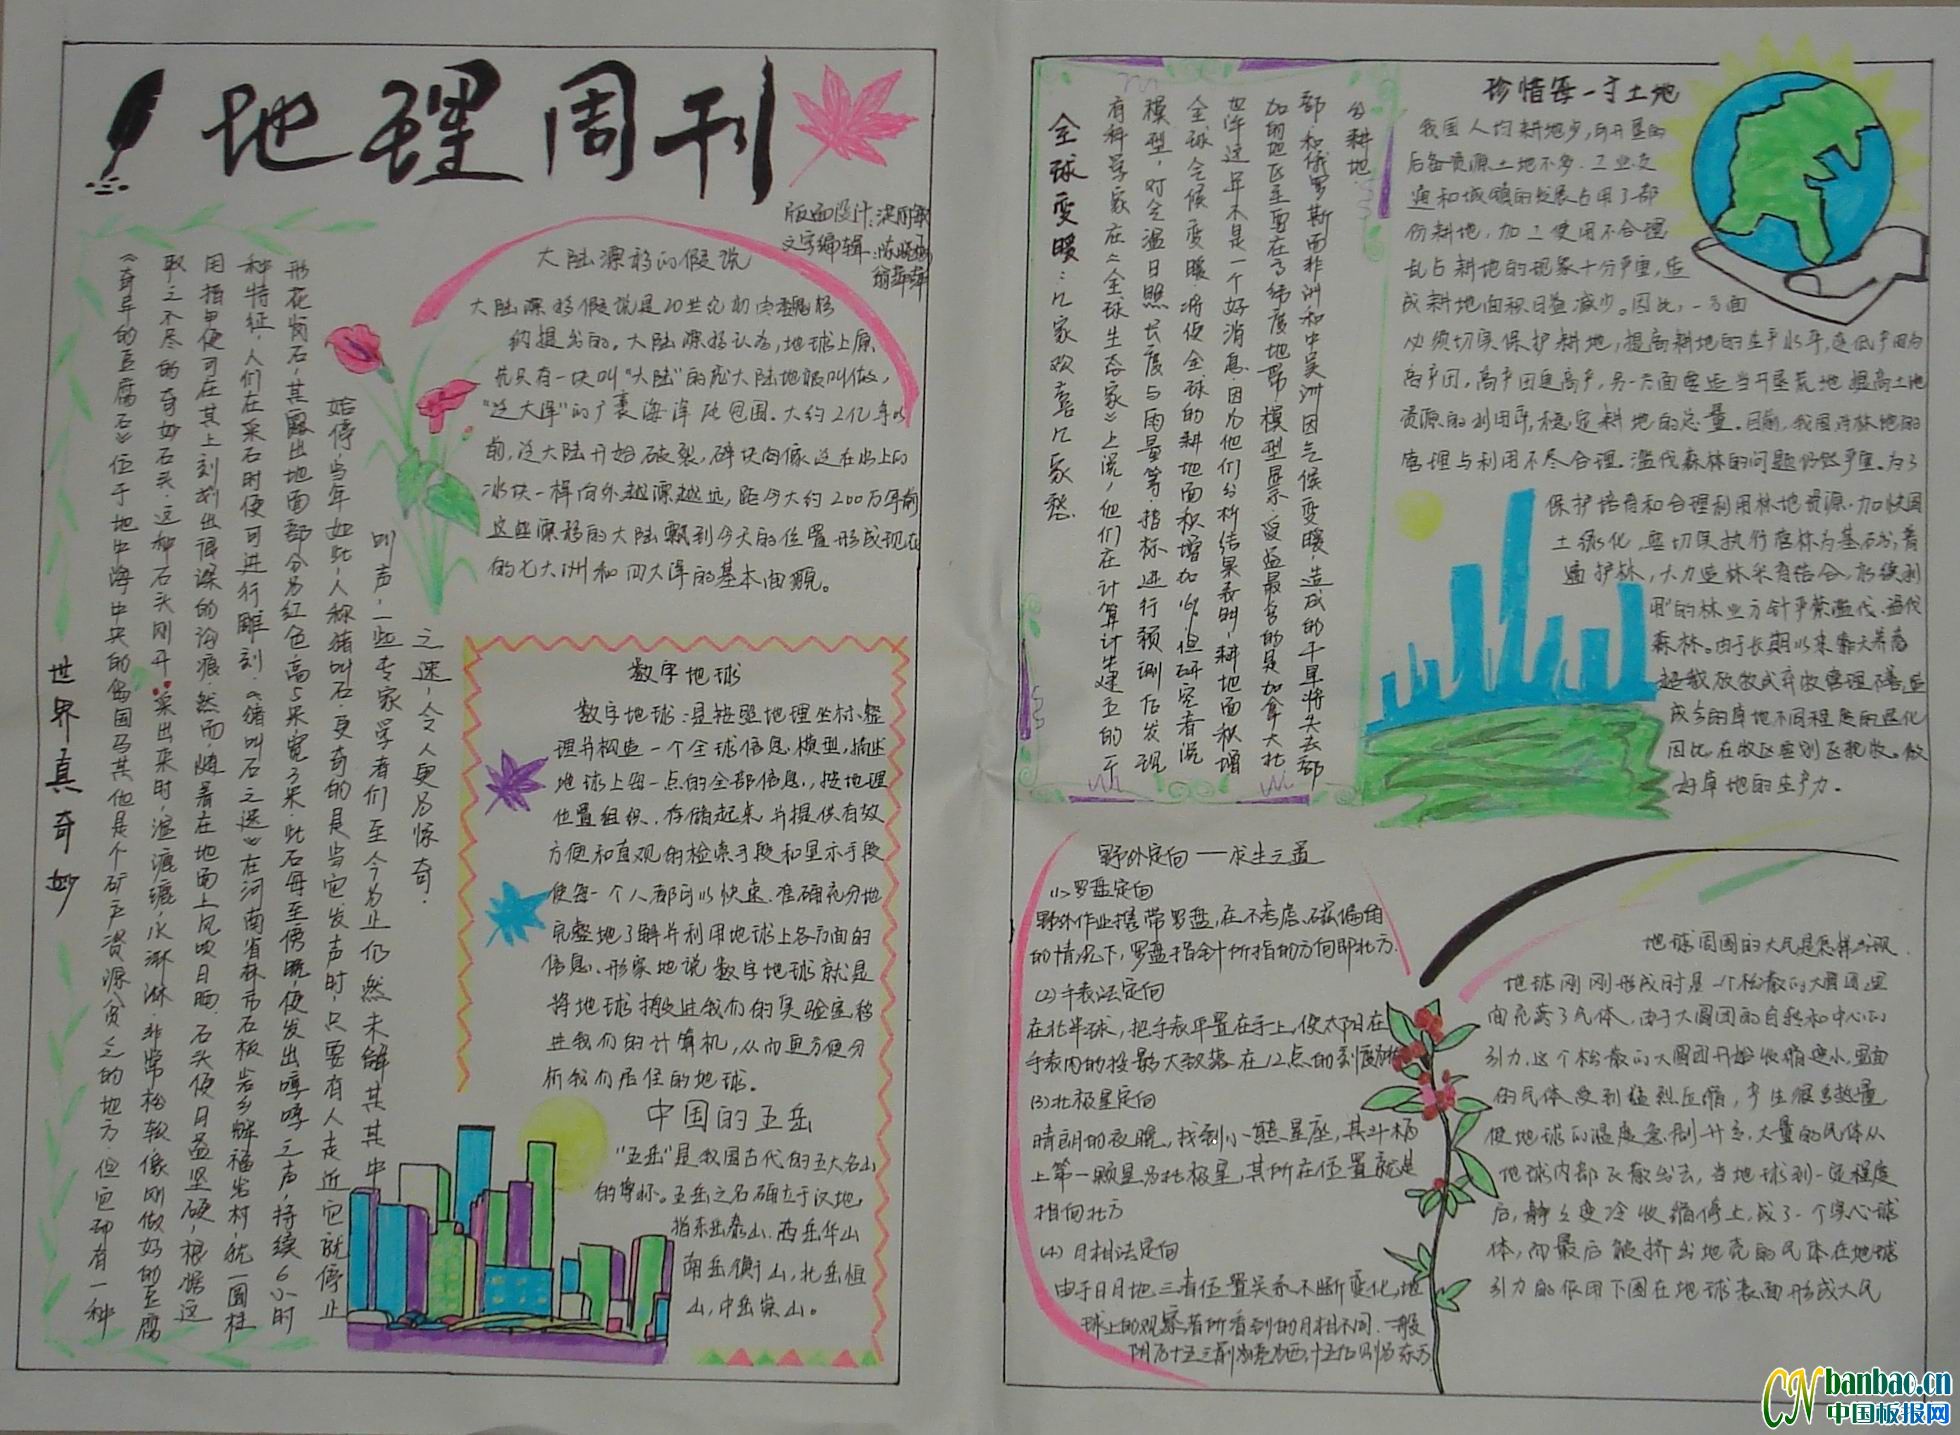 地理周刊
版面设计:
文字编辑:
大陆漂移的假说
大陆漂移假说是20世纪初由魏格
纳提出的。大陆漂移认为,地球上原
先只有一块叫"大陆"的庞大陆地被叫做,
"泛大洋"的广袤海洋所包围。大约2亿年以
前,泛大陆开始破裂,碎块向像泛在水上的
冰块一样向外越漂越远,距今大约200万年前
这些漂移的大陆飘到今天的位置形成现在
的七大洲和四大洋的基本面貌。
世界真奇妙
《奇异的豆腐石》位于地中海中央的岛国马其他是个矿产资源贫乏的地方.但它却有一种
取之不尽的奇妙石头.这种石头刚开采出来时,湿漉漉,水淋淋.非常松软像刚做好的豆腐
用指甲便可在其上刻划出深深的沟痕.然而,随着在地面上风吹日晒,石头便日益坚硬,根据这
种特征,人们在采石时便可进行雕刻.《猪叫石之迷》在河南省林市石板岩乡解福岩村,犹一圆柱
形花岗石,其露出地面部分为红色高5米宽3米.此石每至傍晚,便发出哼哼之声,持续6小时
始停,当年如此,人称猪叫石.更奇的是当它发声时,只要有人走近它就停止
叫声,一些专家学者们至今为止仍然未解其其中
之迷,令人更为惊奇.
数字地球
数字地球:是按照地理坐标整
理并构造一个全球信息模型,描述
地球上每一点的全部信息,按地理
位置组织,存储起来并提供有效
方便和直观的检索手段和显示手段
使每一个人都可以快速.准确充分地
完整地了解并利用地球上各方面的
信息.形象地说数字地球就是
将地球搬进我们的实验室移
进我们的计算机,从而更方便分
析我们居住的地球.
中国的五岳
"五岳"是我国古代的五大名山
的尊称。五岳之名确立于汉地,
指东岳泰山.西岳华山
南岳衡山,北岳恒
山,中岳嵩山。
全球变暖:几家欢喜几家愁.
有科学家在《全球生态家》上说,他们在计算计生建立的干
模型,对全温日照长度与雨量等.指标进行预测后发现
全球气候变暖.将使全球的耕地面积增加16%.但研究者说
也许这并不是一个好消息.因为他们分析结果表明,耕地面积增
加的地区主要在高纬度地带.模型显示.受益最多的是加拿大北
部和俄罗斯而非洲和中美洲因气候变暖造成的干旱将失去部
分耕地.
珍惜每一寸土地
我国人均耕地少,可开垦的
后备资源土地不多.工业交
通和城镇的发展占用了部
份耕地,加上使用不合理
乱占耕地的现象十分严重,造
成耕地面积日益减少。因比,一方面
必须切实保护耕地,提高耕地的生产水平,变低产田为
高产田,高产田更高产,另一方面要适当开垦荒地提高土地
资源的利用率,稳定耕地的总量.目前,我国对林地的
管理与利用不尽合理.滥伐森林的问题仍然严重.为了
保护培育和合理利用林地资源.加快国
土绿化,要切实执行营林为基础,普
遍护林,大力造林采育结合,永续利
用"的林业方针严禁滥伐.盗伐
森林。由于长期以来靠天养畜
超载放牧或弃牧管理不善,造
成多的草地不同程度的退化
因比,在牧区要划区轮牧。做
好草地的生产力.
野外定向——求生之道
(1)罗盘定向
野外作业携带罗盘,在不考虑磁偏角
的情况下,罗盘指针所指的方向即北方.
(2)手表法定向
在北半球,把手表平置在手上,使太阳在
手表内的投影大致落在12点的刻度方向
(3)北极星定向
晴朗的夜晚,找到小熊星座,其斗柄
上第一颗星为北极星,其所在位置就是
相向北方
(4)月相法定向
由于日月地三者位置关系不断变化,地
球上的观察者所看到的月相不同.一般
阴历十五之前为亮为西,十五后则为东方
地球周围的大气是怎样出现.
地球刚刚形成时是一个松散的大圆团里
面充满了气体.由于大圆团的自转和中心的
引力.这个松散的大圆团开始收缩变小.里面
的气体受到猛烈压缩,产生很多热量
使地球的温度急剧升高,大量的气体从
地球内部飞散出去,当地球到一定程度
后,静之变冷收缩停止,成了一个实心球
体,而最后被挤出地壳的气体在地球
引力的作用下围在地球表面形成大气
CN banbao.cn
中国板报网